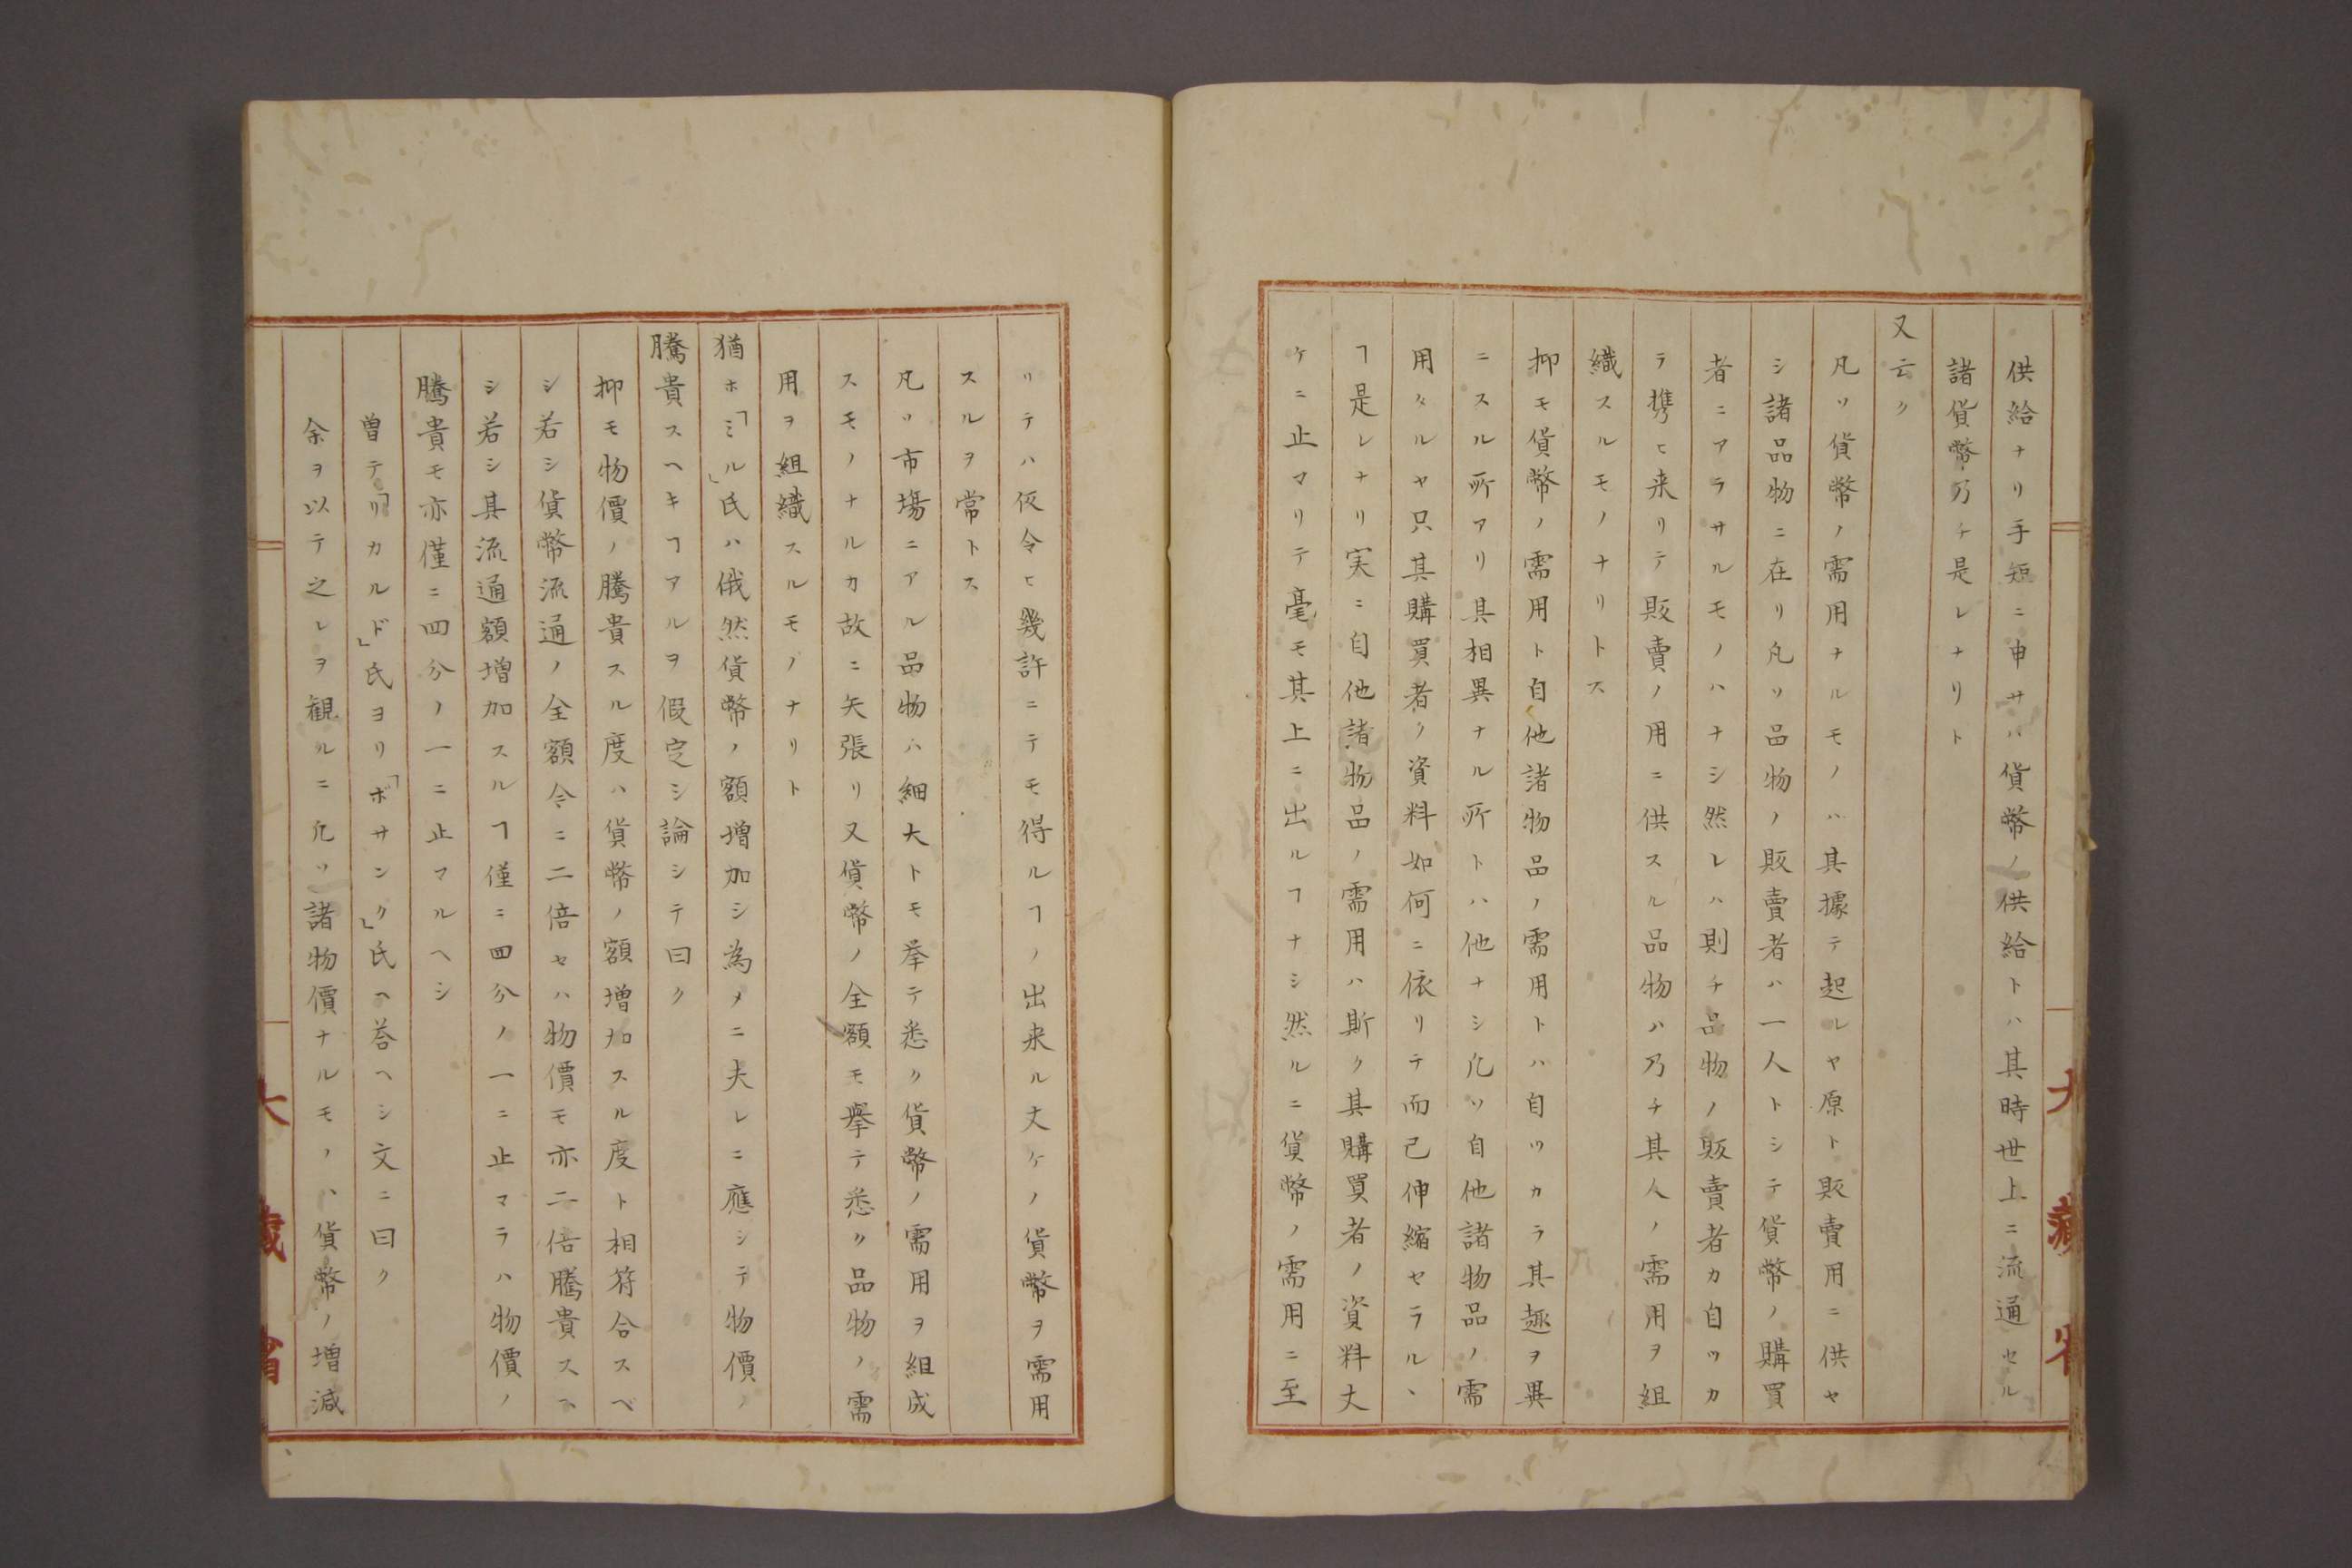 供給ナリ手短ニ申サハ貨幣ノ供給トハ其時世上ニ流通セル
諸貨幣乃チ是レナリト
又云ク
凡ソ貨幣ノ需用ナルモノハ其據テ起レヤ原ト販賣用ニ供セ
シ諸品物ニ在リ凡ソ品物ノ販賣者ハ一人トシテ貨幣ノ購買
者ニアラサルモノハナシ然レハ則チ品物ノ販賣者カ自ツカ
ラ携ヒ来リテ販賣ノ用ニ供スル品物ハ乃チ其人ノ需用ヲ組
織スルモノナリトス
抑モ貨幣ノ需用ト自他諸物品ノ需用トハ自ツカラ其趣ヲ異
ニスル所アリ其相異ナル所トハ他ナシ凡ソ自他諸物品ノ需
用タルヤ只其購買者ノ資料如何ニ依リテ而已伸縮セラルヽ
ヿ是レナリ実ニ自他諸物品ノ需用ハ斯ク其購買者ノ資料丈
ケニ止マリテ毫モ其上ニ出ルヿナシ然ルニ貨幣ノ需用ニ至
リテハ仮令ヒ幾許ニテモ得ルヿノ出来ル丈ケノ貨幣ヲ需用
スルヲ常トス
凡ソ市場ニアル品物ハ細大トモ挙テ悉ク貨幣ノ需用ヲ組成
スモノナルカ故ニ矢張リ又貨幣ノ全額モ擧テ悉ク品物ノ需
用ヲ組織スルモノナリト
猶ホ「ミル」氏ハ俄然貨幣ノ額増加シ為メニ夫レニ應シテ物價ノ
騰貴スヘキヿアルヲ假定シ論シテ曰ク
抑モ物價ノ騰貴スル度ハ貨幣ノ額増加スル度ト相符合スベ
シ若シ貨幣流通ノ全額今ニ二倍セハ物價モ亦二倍騰貴スヘ
シ若シ其流通額増加スルヿ僅ニ四分ノ一ニ止マラハ物價ノ
騰貴モ亦僅ニ四分ノ一ニ止マルヘシ
曽テ「リカルド」氏ヨリ「ボサンク」氏ヘ答ヘシ文ニ曰ク
余ヲ以テ之レヲ観ルニ凡ソ諸物價ナルモノハ貨幣ノ増減
大藏省